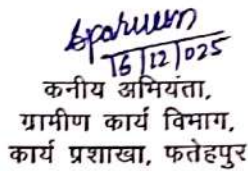 16/12/025
कनीय अभियंता,
ग्रामीण कार्य विभाग,
कार्य प्रशाखा, फतेहपुर